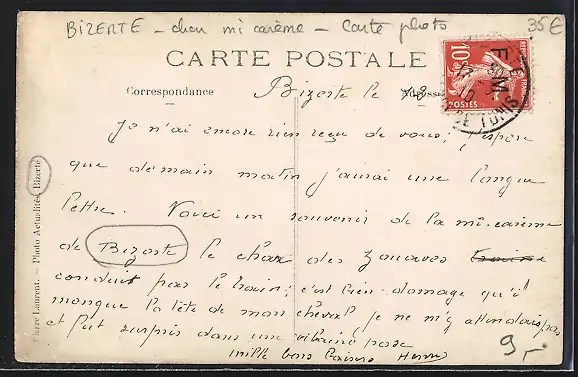 BIZERTE - char mi carème - Carte photo 35€
CARTE POSTALE
Correspondance
Adresse
Bizerte le 18
Je n'ai encore rien reçu de vous, j'espère
que demain matin j'aurai une longue
lettre. Voici un souvenir de la mi-carême
de Bizerte le char des Zouaves
conduit par le train; c'est bien dommage qu'il
manque la tête de mon cheval je ne m'y attendais pas
et fut surpris dans une vilaine pose
mille bons baisers
9,-
Pierre Laurent. — Photo Actualités, Bizerte
10c
POSTES
F M
TUNIS